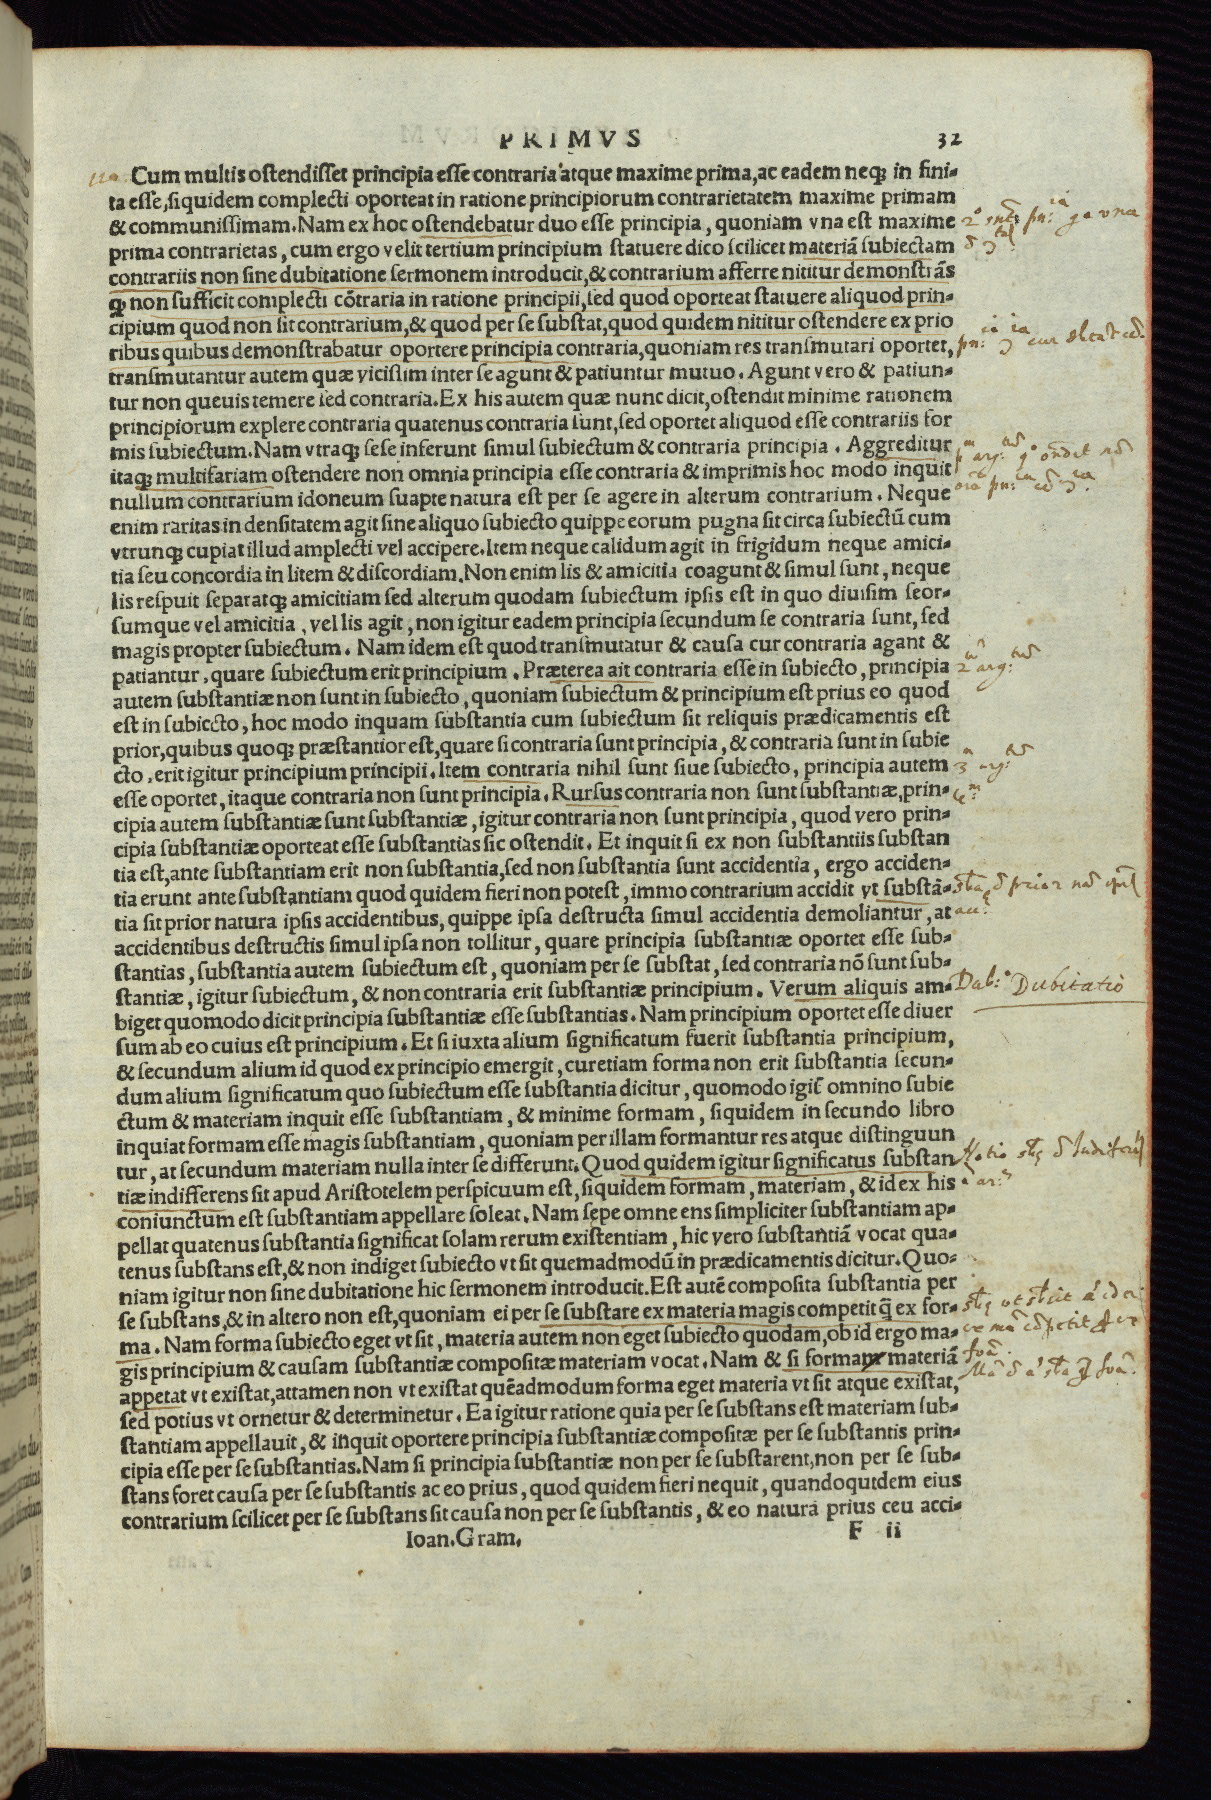 PRIMVS 32
Cum multis ostendisset principia esse contraria atque maxime prima, ac eadem neq; in fini-
ta esse, siquidem complecti oporteat in ratione principiorum contrarietatem maxime primam
& communissimam. Nam ex hoc ostendebatur duo esse principia, quoniam vna est maxime
prima contrarietas, cum ergo velit tertium principium statuere dico scilicet materiã subiectam
contrariis non sine dubitatione sermonem introducit, & contrarium afferre nititur demonstrãs
q; non sufficit complecti cõtraria in ratione principii, sed quod oporteat statuere aliquod prin-
cipium quod non sit contrarium, & quod per se substat, quod quidem nititur ostendere ex prio
ribus quibus demonstrabatur oportere principia contraria, quoniam res transmutari oportet,
transmutantur autem quæ vicissim inter se agunt & patiuntur mutuo. Agunt vero & patiun-
tur non queuis temere sed contraria. Ex his autem quæ nunc dicit, ostendit minime rationem
principiorum explere contraria quatenus contraria sunt, sed oportet aliquod esse contrariis for
mis subiectum. Nam vtraq; sese inferunt simul subiectum & contraria principia. Aggreditur
itaq; multifariam ostendere non omnia principia esse contraria & imprimis hoc modo inquit
nullum contrarium idoneum suapte natura est per se agere in alterum contrarium. Neque
enim raritas in densitatem agit sine aliquo subiecto quippe eorum pugna sit circa subiectũ cum
vtrunq; cupiat illud amplecti vel accipere. Item neque calidum agit in frigidum neque amici-
tia seu concordia in litem & discordiam. Non enim lis & amicitia coagunt & simul sunt, neque
lis respuit separatq; amicitiam sed alterum quodam subiectum ipsis est in quo diuisim seor-
sumque vel amicitia, vel lis agit, non igitur eadem principia secundum se contraria sunt, sed
magis propter subiectum. Nam idem est quod transmutatur & causa cur contraria agant &
patiantur, quare subiectum erit principium. Præterea ait contraria esse in subiecto, principia
autem substantiæ non sunt in subiecto, quoniam subiectum & principium est prius eo quod
est in subiecto, hoc modo inquam substantia cum subiectum sit reliquis prædicamentis est
prior, quibus quoq; præstantior est, quare si contraria sunt principia, & contraria sunt in subie
cto, erit igitur principium principii. Item contraria nihil sunt siue subiecto, principia autem
esse oportet, itaque contraria non sunt principia. Rursus contraria non sunt substantiæ, prin-
cipia autem substantiæ sunt substantiæ, igitur contraria non sunt principia, quod vero prin-
cipia substantiæ oporteat esse substantias sic ostendit. Et inquit si ex non substantiis substan
tia est, ante substantiam erit non substantia, sed non substantia sunt accidentia, ergo acciden-
tia erunt ante substantiam quod quidem fieri non potest, immo contrarium accidit vt substã-
tia sit prior natura ipsis accidentibus, quippe ipsa destructa simul accidentia demoliantur, at
accidentibus destructis simul ipsa non tollitur, quare principia substantiæ oportet esse sub-
stantias, substantia autem subiectum est, quoniam per se substat, sed contraria nõ sunt sub-
stantiæ, igitur subiectum, & non contraria erit substantiæ principium. Verum aliquis am-
Dubitatio
biget quomodo dicit principia substantiæ esse substantias. Nam principium oportet esse diuer
sum ab eo cuius est principium. Et si iuxta alium significatum fuerit substantia principium,
& secundum alium id quod ex principio emergit, cur etiam forma non erit substantia secun-
dum alium significatum quo subiectum esse substantia dicitur, quomodo igit̃ omnino subie
ctum & materiam inquit esse substantiam, & minime formam, siquidem in secundo libro
inquiat formam esse magis substantiam, quoniam per illam formantur res atque distinguun
tur, at secundum materiam nulla inter se differunt. Quod quidem igitur significatus substan
tiæ indifferens sit apud Aristotelem perspicuum est, siquidem formam, materiam, & id ex his
coniunctum est substantiam appellare soleat. Nam sepe omne ens simpliciter substantiam ap-
pellat quatenus substantia significat solam rerum existentiam, hic vero substantiã vocat qua-
tenus substans est, & non indiget subiecto vt sit quemadmodũ in prædicamentis dicitur. Quo-
niam igitur non sine dubitatione hic sermonem introducit. Est autẽ composita substantia per
se substans, & in altero non est, quoniam ei per se substare ex materia magis competit q̃ ex for-
ma. Nam forma subiecto eget vt sit, materia autem non eget subiecto quodam, ob id ergo ma-
gis principium & causam substantiæ compositæ materiam vocat. Nam & si formam materiã
appetat vt existat, attamen non vt existat quẽadmodum forma eget materia vt sit atque existat,
sed potius vt ornetur & determinetur. Ea igitur ratione quia per se substans est materiam sub-
stantiam appellauit, & inquit oportere principia substantiæ compositæ per se substantis prin-
cipia esse per se substantias. Nam si principia substantiæ non per se substarent, non per se sub-
stans foret causa per se substantis ac eo prius, quod quidem fieri nequit, quandoqutdem eius
contrarium scilicet per se substans sit causa non per se substantis, & eo natura prius ceu acci-
Ioan. Gram. F ii